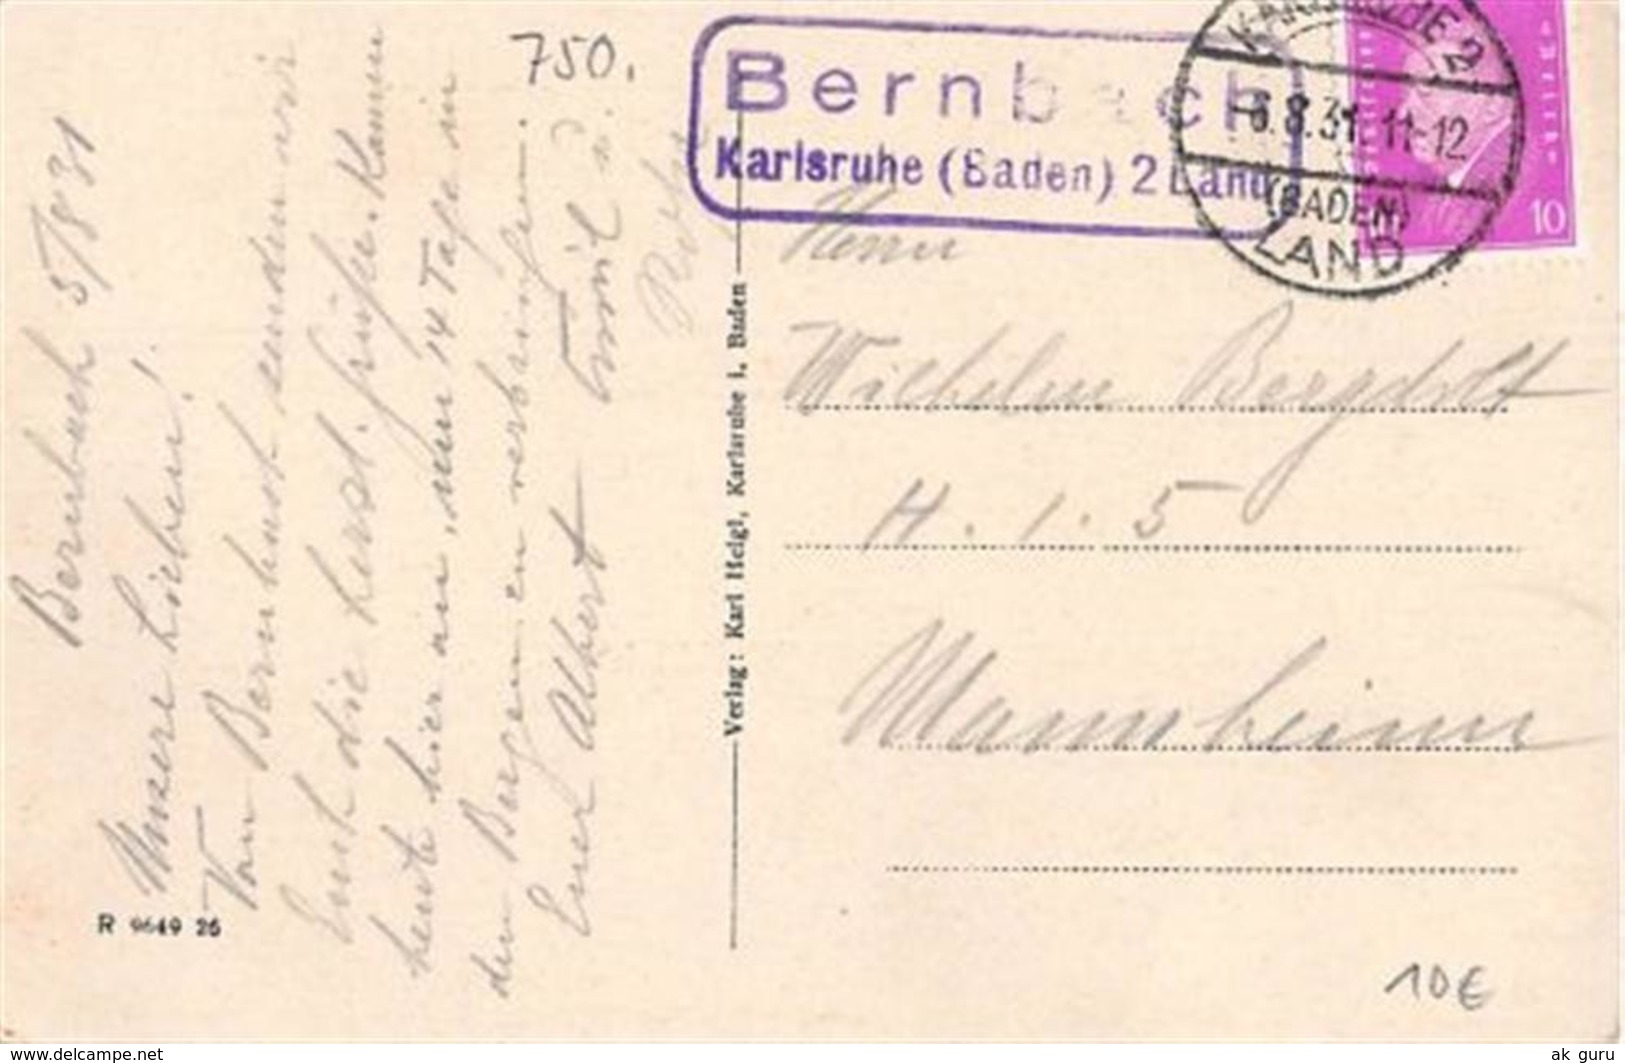 750.
Bernbach
Karlsruhe (Baden) 2 Land
KARLSRUHE 2
6.8.31. 11-12
(BADEN)
LAND
10
Bernbach 5/8 31
Unsere Lieben!
Von Bernbach senden wir
Euch die herzl. Grüße. Kamen
heute hier an, um 14 Tage in
den Bergen zu verbringen.
Euer Albert Emil u.
Verlag: Karl Heigl, Karlsruhe i. Baden
Herrn
Wilhelm Bergdolt
H. 1. 5
Mannheim
R 9649 26
10€
www.delcampe.net
ak_guru